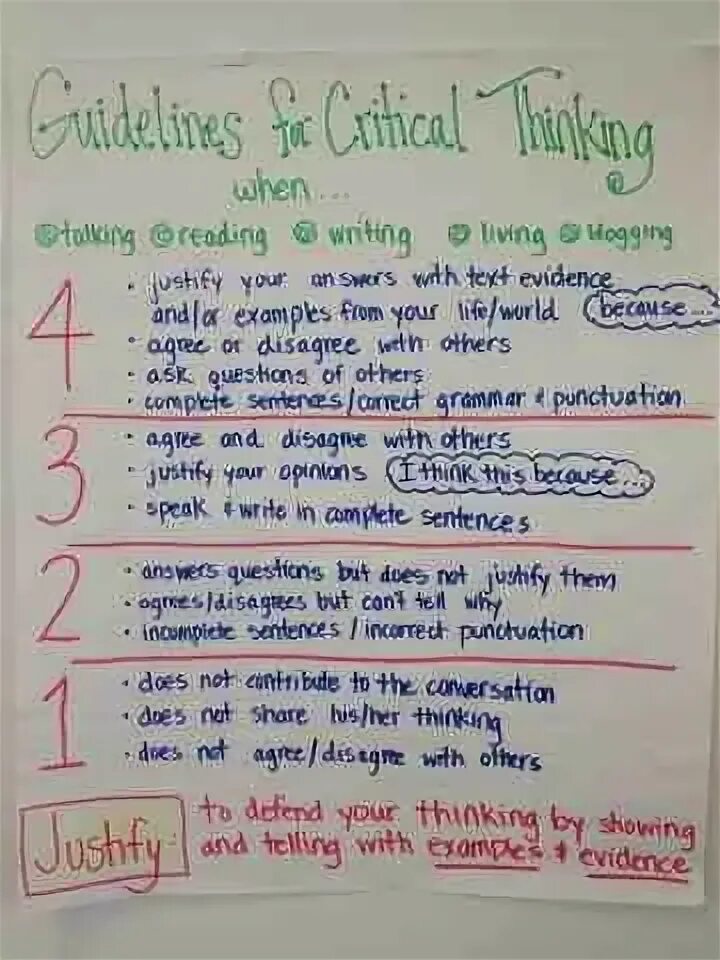 Guidelines for Critical Thinking
when...
talking reading writing living blogging
4
• justify your answers with text evidence
and/or examples from your life/world because...
• agree or disagree with others
• ask questions of others
• complete sentences/correct grammar + punctuation
3
• agree and disagree with others
• justify your opinions I think this because...
• speak + write in complete sentences
2
• answers questions but does not justify them
• agrees/disagrees but can't tell why
• incomplete sentences/incorrect punctuation
1
• does not contribute to the conversation
• does not share his/her thinking
• does not agree/disagree with others
Justify
to defend your thinking by showing
and telling with examples + evidence